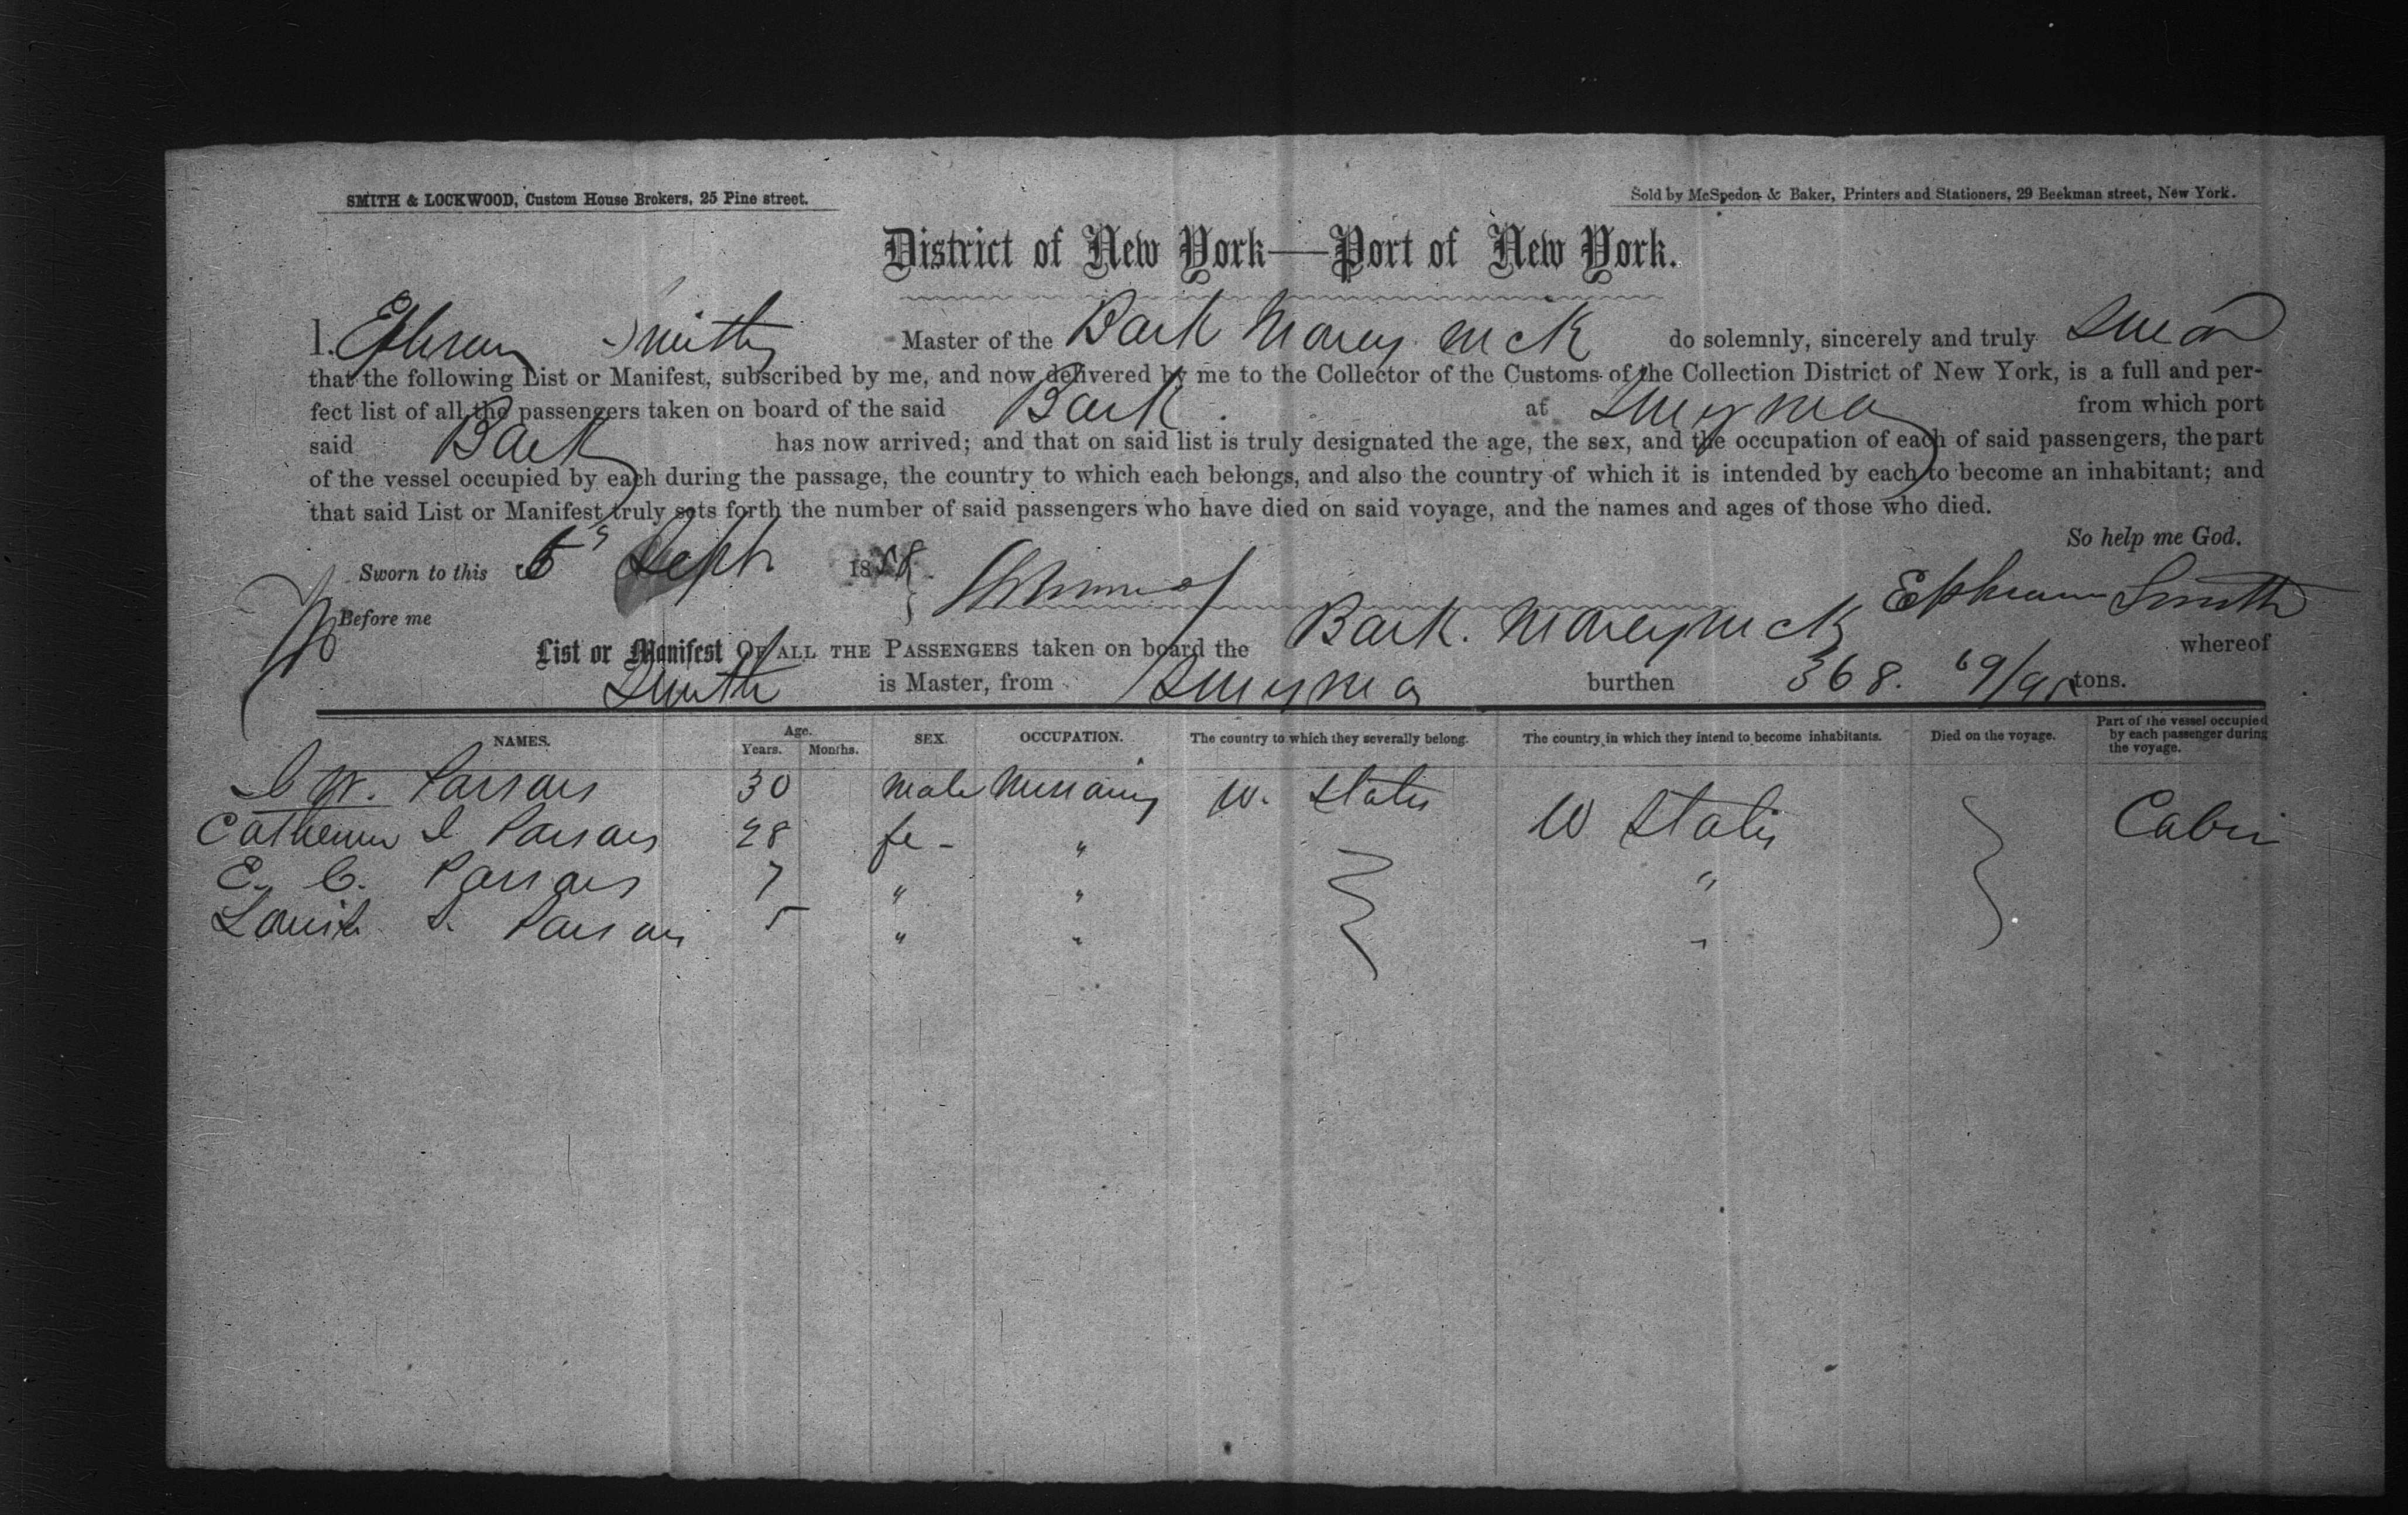 SMITH & LOCKWOOD, Custom House Brokers, 25 Pine street.
Sold by McSpedon & Baker, Printers and Stationers, 29 Beekman street, New York.
District of New York—Port of New York.
I. Ephraim Smith Master of the Bark do solemnly, sincerely and truly swear
that the following List or Manifest, subscribed by me, and now delivered by me to the Collector of the Customs of the Collection District of New York, is a full and per-
fect list of all the passengers taken on board of the said Bark at Smyrna from which port
said Bark has now arrived; and that on said list is truly designated the age, the sex, and the occupation of each of said passengers, the part
of the vessel occupied by each during the passage, the country to which each belongs, and also the country of which it is intended by each to become an inhabitant; and
that said List or Manifest truly sets forth the number of said passengers who have died on said voyage, and the names and ages of those who died.
So help me God.
Sworn to this 6" Sept 1858
Ephraim Smith
Before me
List or Manifest OF ALL THE PASSENGERS taken on board the Bark. whereof
Smith is Master, from Smyrna burthen 368. 69/95 tons.
NAMES. Age. Years. Months. SEX. OCCUPATION. The country to which they severally belong. The country in which they intend to become inhabitants. Died on the voyage. Part of the vessel occupied by each passenger during the voyage.
W. Parsons 30 male U. States
Catherine Parsons 28 fe - " U States Cabin
E. C. Parsons 7 " " "
Louisa S. Parsons 5 " " "